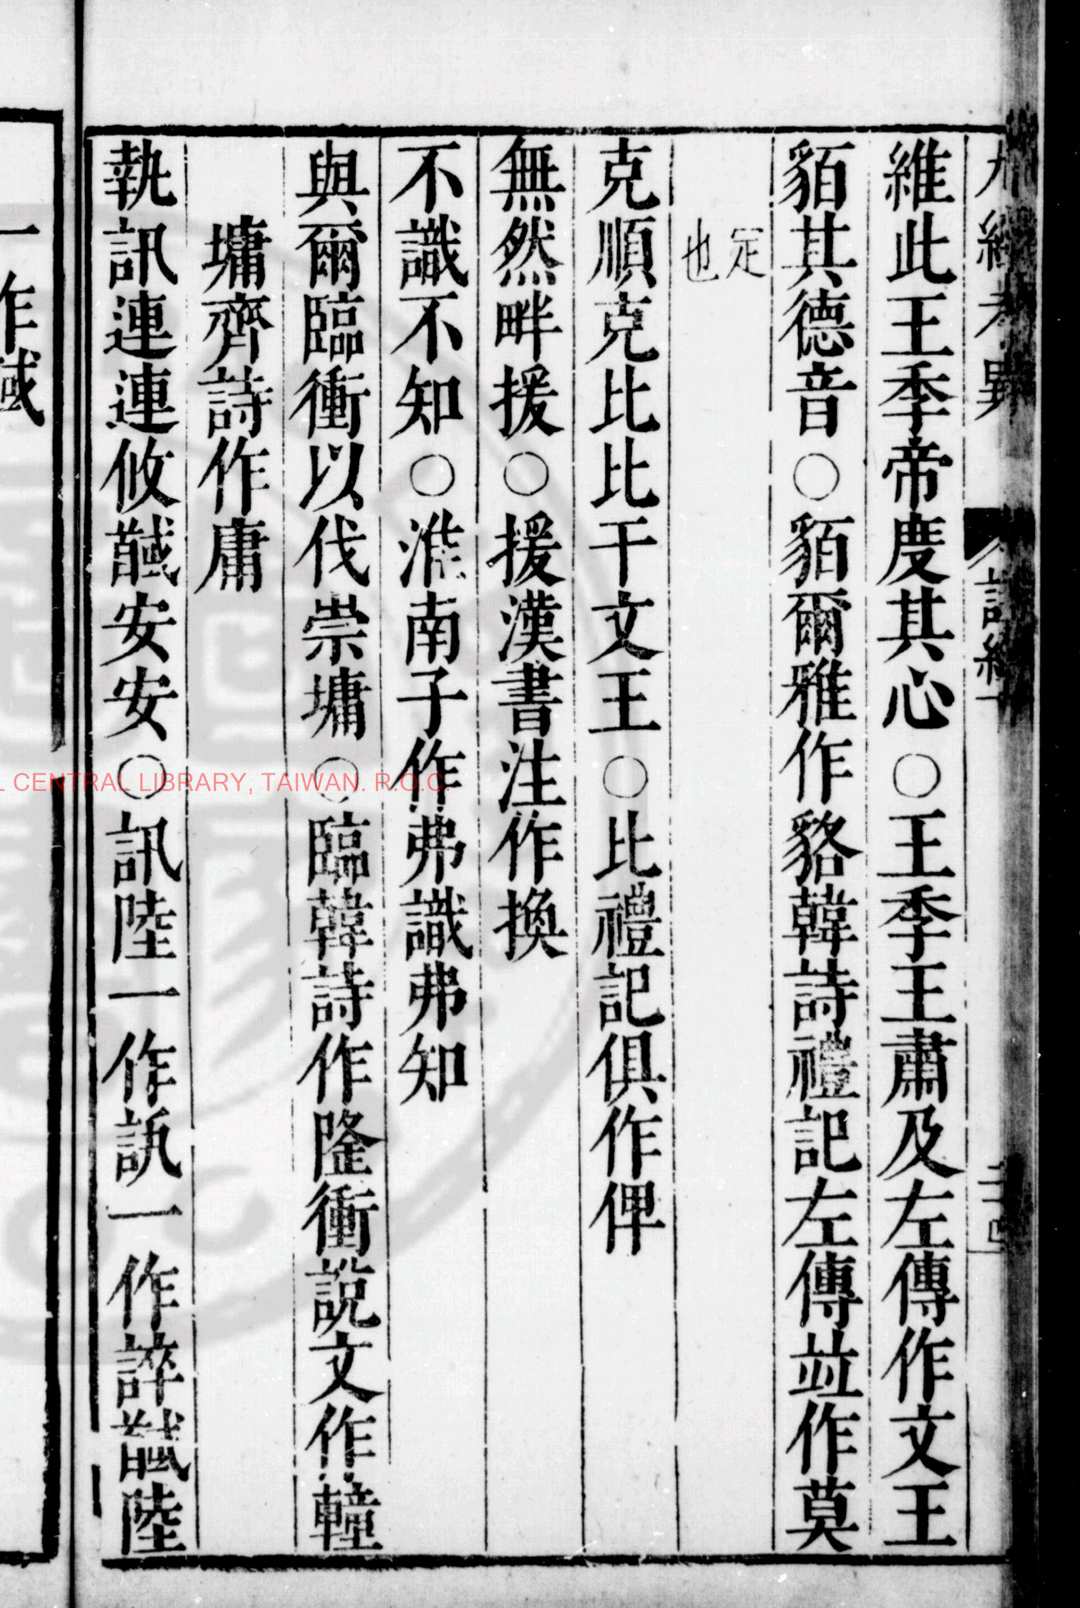 維此王季帝度其心○王季王肅及左傳作文王
貊其德音○貊爾雅作貉韓詩禮記左傳竝作莫
定
也
克順克比比于文王○比禮記俱作俾
無然畔援○援漢書注作換
不識不知○淮南子作弗識弗知
與爾臨衝以伐崇墉○臨韓詩作隆衝說文作䡴
墉齊詩作庸
執訊連連攸馘安安○訊陸一作訙一作誶馘陸
一作䤋
CENTRAL LIBRARY, TAIWAN. R.O.C.